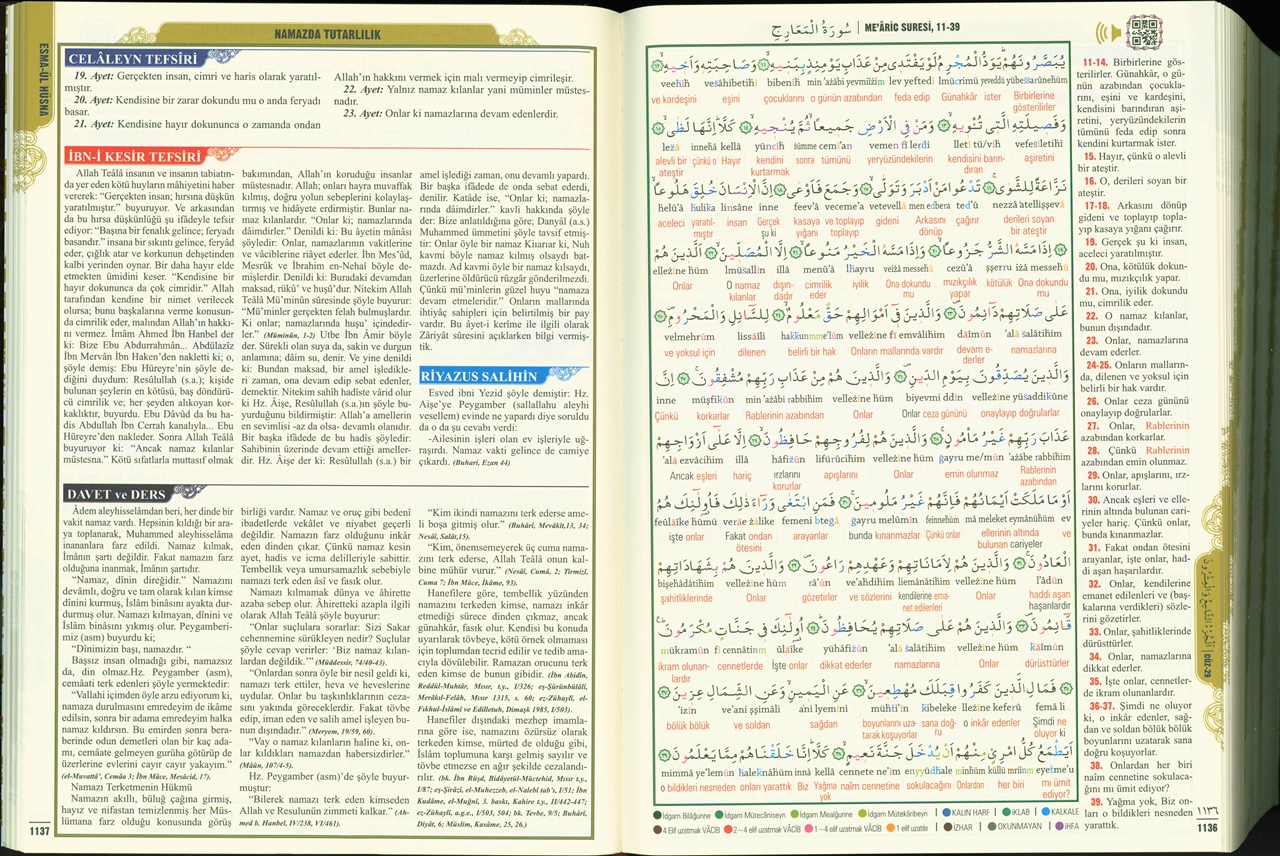 ESMA-ÜL HÜSNA
NAMAZDA TUTARLILIK
CELÂLEYN TEFSÎRİ
19. Ayet: Gerçekten insan, cimri ve haris olarak yaratıl-
mıştır.
20. Ayet: Kendisine bir zarar dokundu mu o anda feryadı
basar.
21. Ayet: Kendisine hayır dokununca o zamanda ondan
Allah'ın hakkını vermek için malı vermeyip cimrileşir.
22. Ayet: Yalnız namaz kılanlar yani müminler müstes-
nadır.
23. Ayet: Onlar ki namazlarına devam edenlerdir.
İBN-İ KESİR TEFSİRİ
Allah Teâlâ insanın ve insanın tabiatın-
da yer eden kötü huyların mâhiyetini haber
vererek: "Gerçekten insan; hırsına düşkün
yaratılmıştır." buyuruyor. Ve arkasından
da bu hırsa düşkünlüğü şu ifâdeyle tefsir
ediyor: "Başına bir fenalık gelince; feryadı
basandır." insana bir sıkıntı gelince, feryâd
eder, çığlık atar ve korkunun dehşetinden
kalbi yerinden oynar. Bir daha hayır elde
etmekten ümidini keser. "Kendisine bir
hayır dokununca da çok cimridir." Allah
tarafından kendine bir nimet verilecek
olursa; bunu başkalarına verme konusun-
da cimrilik eder, malından Allah'ın hakkı-
nı vermez. İmâm Ahmed İbn Hanbel der
ki: Bize Ebu Abdurrahmân... Abdülaziz
İbn Mervân İbn Haken'den nakletti ki; o,
şöyle demiş: Ebu Hüreyre'nin şöyle de-
diğini duydum: Resûlullah (s.a.); kişide
bulunan şeylerin en kötüsü, baş döndürü-
cü cimrilik ve; her şeyden alıkoyan kor-
kaklıktır, buyurdu. Ebu Dâvûd da bu ha-
dis Abdullah İbn Cerrah kanalıyla... Ebu
Hüreyre'den nakleder. Sonra Allah Teâlâ
buyuruyor ki: "Ancak namaz kılanlar
müstesna." Kötü sıfatlarla muttasıf olmak
bakımından, Allah'ın koruduğu insanlar
müstesnadır. Allah; onları hayra muvaffak
kılmış, doğru yolun sebeplerini kolaylaş-
tırmış ve hidâyete erdirmiştir. Bunlar na-
maz kılanlardır. "Onlar ki; namazlarında
dâimdirler." Denildi ki: Bu âyetin mânâsı
şöyledir: Onlar, namazlarının vakitlerine
ve vâciblerine riâyet ederler. İbn Mes'ûd,
Mesrûk ve İbrahim en-Nehaî böyle de-
mişlerdir. Denildi ki: Buradaki devamdan
maksad, rükû' ve huşû'dur. Nitekim Allah
Teâlâ Mü'minûn sûresinde şöyle buyurur:
"Mü'minler gerçekten felah bulmuşlardır.
Ki onlar; namazlarında huşu' içindedir-
ler." (Müminûn, 1-2) Utbe İbn Âmir böyle
der. Sürekli olan suya da, sakin ve durgun
anlamına; dâim su, denir. Ve yine denildi
ki: Bundan maksad, bir amel işledikle-
ri zaman, ona devam edip sebat edenler,
demektir. Nitekim sahih hadiste vârid olur
ki Hz. Âişe, Resûlullah (s.a.)ın şöyle bu-
yurduğunu bildirmiştir: Allah'a amellerin
en sevimlisi -az da olsa- devamlı olanıdır.
Bir başka ifâdede de bu hadîs şöyledir:
Sahibinin üzerinde devam ettiği ameller-
dir. Hz. Âişe der ki: Resûlullah (s.a.) bir
amel işlediği zaman, onu devamlı yapardı.
Bir başka ifâdede de onda sebat ederdi,
denilir. Katâde ise, "Onlar ki; namazla-
rında dâimdirler." kavli hakkında şöyle
der: Bize anlatıldığına göre; Danyâl (a.s.)
Muhammed ümmetini şöyle tavsif etmiş-
tir: Onlar öyle bir namaz Kııarıar ki, Nuh
kavmi böyle namaz kılmış olsaydı bat-
mazdı. Ad kavmi öyle bir namaz kılsaydı,
üzerlerine öldürücü rüzgâr gönderilmezdi.
Çünkü mü'minlerin güzel huyu "namaza
devam etmeleridir." Onların mallarında
ihtiyâç sahipleri için belirtilmiş bir pay
vardır. Bu âyet-i kerîme ile ilgili olarak
Zâriyât sûresini açıklarken bilgi vermiş-
tik.
RİYAZUS SALİHİN
Esved ibni Yezid şöyle demiştir: Hz.
Aişe'ye Peygamber (sallallahu aleyhi
vesellem) evinde ne yapardı diye soruldu
da o da şu cevabı verdi:
-Ailesinin işleri olan ev işleriyle uğ-
raşırdı. Namaz vakti gelince de camiye
çıkardı. (Buhari, Ezan 44)
DAVET ve DERS
Âdem aleyhisselâmdan beri, her dinde bir
vakit namaz vardı. Hepsinin kıldığı bir ara-
ya toplanarak, Muhammed aleyhisselâma
inananlara farz edildi. Namaz kılmak,
îmânın şartı değildir. Fakat namazın farz
olduğuna inanmak, îmânın şartıdır.
"Namaz, dînin direğidir." Namazını
devâmlı, doğru ve tam olarak kılan kimse
dînini kurmuş, İslâm binâsını ayakta dur-
durmuş olur. Namazı kılmayan, dînini ve
İslâm binâsını yıkmış olur. Peygamberi-
miz (asm) buyurdu ki;
"Dînimizin başı, namazdır. "
Başsız insan olmadığı gibi, namazsız
da, din olmaz.Hz. Peygamber (asm),
cemâati terk edenleri şöyle yermektedir:
"Vallahi içimden öyle arzu ediyorum ki,
namaza durulmasını emredeyim de ikâme
edilsin, sonra bir adama emredeyim halka
namaz kıldırsın. Bu emirden sonra bera-
berinde odun demetleri olan bir kaç ada-
mı, cemâate gelmeyen gurüha götürüp de
üzerlerine evlerini cayır cayır yakayım."
(el-Muvattâ', Cemâa 3; İbn Mâce, Mesâcid, 17).
Namazı Terketmenin Hükmü
Namazın akıllı, büluğ çağına girmiş,
hayız ve nifastan temizlenmiş her Müs-
lümana farz olduğu konusunda görüş
birliği vardır. Namaz ve oruç gibi bedenî
ibadetlerde vekâlet ve niyabet geçerli
değildir. Namazın farz olduğunu inkâr
eden dinden çıkar. Çünkü namaz kesin
ayet, hadis ve icma delilleriyle sabittir.
Tembellik veya umursamazlık sebebiyle
namazı terk eden âsî ve fasık olur.
Namazı kılmamak dünya ve âhirette
azaba sebep olur. Âhiretteki azapla ilgili
olarak Allah Teâlâ şöyle buyurur:
"Onlar suçlulara sorarlar: Sizi Sakar
cehennemine sürükleyen nedir? Suçlular
şöyle cevap verirler: 'Biz namaz kılan-
lardan değildik.'" (Müddessir, 74/40-43).
"Onlardan sonra öyle bir nesil geldi ki,
namazı terk ettiler, heva ve heveslerine
uydular. Onlar bu taşkınlıklarının ceza-
sını yakında göreceklerdir. Fakat tövbe
edip, iman eden ve salih amel işleyen bu-
nun dışındadır." (Meryem, 19/59, 60).
"Vay o namaz kılanların haline ki, on-
lar kıldıkları namazdan habersizdirler."
(Mâûn, 107/4-5).
Hz. Peygamber (asm)'de şöyle buyur-
muştur:
"Bilerek namazı terk eden kimseden
Allah ve Resulunün zimmeti kalkar." (Ah-
med b. Hanbel, IV/238, VI/461).
"Kim ikindi namazını terk ederse ame-
li boşa gitmiş olur." (Buhârî, Mevâkît,13, 34;
Nesâî, Salât,15).
"Kim, önemsemeyerek üç cuma nama-
zını terk ederse, Allah Teâlâ onun kal-
bine mühür vurur." (Nesâî, Cumâ, 2; Tirmizî,
Cuma 7; İbn Mâce, İkâme, 93).
Hanefilere göre, tembellik yüzünden
namazını terkeden kimse, namazı inkar
etmediği sürece dinden çıkmaz, ancak
günahkâr, fasık olur. Kendisi bu konuda
uyarılarak tövbeye, kötü örnek olmaması
için toplumdan tecrid edilir ve tedib ama-
cıyla dövülebilir. Ramazan orucunu terk
eden kimse de bunun gibidir. (İbn Abidîn,
Reddül-Muhtâr, Mısır, t.y., I/326; eş-Şürünbülâlî,
Merâkıl-Felâh, Mısır 1315, s. 60; ez-Zühaylî, el-
Fıkhul-İslâmî ve Edilletuh, Dimaşk 1985, I/503).
Hanefiler dışındaki mezhep imamla-
rına göre ise, namazını özürsüz olarak
terkeden kimse, mürted de olduğu gibi,
İslâm toplumuna karşı gelmiş sayılır ve
tövbe etmezse en ağır şekilde cezalandı-
rılır. (bk. İbn Rüşd, Bidâyetül-Müctehid, Mısır t.y.,
I/87; eş-Şirâzî, el-Muhezzeb, el-Nalebî tab'ı, I/51; İbn
Kudâme, el-Muğnî, 3. baskı, Kahire t.y., II/442-447;
ez-Zühaylî, a.g.e., I/503, 504; bk. Tevbe, 9/5; Buhâri,
Diyât, 6; Müslim, Kasâme, 25, 26.)
1137
سُورَةُ الْمَعَارِجِ | ME'ÂRİC SURESİ, 11-39
يُبَصَّرُونَهُمْ يَوَدُّ الْمُجْرِمُ لَوْ يَفْتَدِى مِنْ عَذَابِ يَوْمِئِذٍ بِبَنِيهِ ﴿١١﴾ وَصَاحِبَتِهِ وَاَخِيهِ ﴿١٢﴾
veehîh veśâhibetihî bibenîh min 'ażâbi yevmiiżim lev yeftedî lmücrimü yeveddü yübeśśarûnehüm
ve kardeşini eşini çocuklarını o günün azabından feda edip Günahkâr ister Birbirlerine
gösterilirler
وَفَصِيلَتِهِ الَّتِى تُـْٔوِيهِ ﴿١٣﴾ وَمَنْ فِى الْاَرْضِ جَمِيعًا ثُمَّ يُنْجِيهِ ﴿١٤﴾ كَلَّا اِنَّهَا لَظٰى ﴿١٥﴾
leżâ innehâ kellâ yüncîh śümme cemî'an vemen fî lerdi lletî tü/vîh vefeśîletihi
alevli bir çünkü o Hayır kendini sonra tümünü yeryüzündekilerin kendisini barın- aşiretini
ateştir kurtarmak dıran
نَزَّاعَةً لِلشَّوٰى ﴿١٦﴾ تَدْعُوا مَنْ اَدْبَرَ وَتَوَلّٰى ﴿١٧﴾ وَجَمَعَ فَاَوْعٰى ﴿١٨﴾ اِنَّ الْاِنْسَانَ خُلِقَ هَلُوعًا ﴿١٩﴾
helû'â hulika linsâne inne feev'â veceme'a vetevellâ men edbera ted'û nezzâ'atellişşevâ
aceleci yaratıl- insan Gerçek kasaya ve toplayıp gideni Arkasını çağırır derileri soyan
mıştır şu ki yığanı toplayıp dönüp bir ateştir
اِذَا مَسَّهُ الشَّرُّ جَزُوعًا ﴿٢٠﴾ وَاِذَا مَسَّهُ الْخَيْرُ مَنُوعًا ﴿٢١﴾ اِلَّا الْمُصَلِّينَ ﴿٢٢﴾ اَلَّذِينَ هُمْ
elleżîne hüm lmüśallîn illâ menû'â lhayru veiżâ messehü cezû'â şşerru iżâ messehü
Onlar O namaz dışın- cimrilik iyilik Ona dokundu mızıkçılık kötülük Ona dokundu
kılanlar dadır eder mu yapar mu
عَلٰى صَلَاتِهِمْ دَٓائِمُونَ ﴿٢٣﴾ وَالَّذِينَ فِٓى اَمْوَالِهِمْ حَقٌّ مَعْلُومٌ ﴿٢٤﴾ لِلسَّٓائِلِ وَالْمَحْرُومِ ﴿٢٥﴾
velmehrûm lissâili hakkunmme'lûm velleżîne fî emvâlihim dâimûn 'alâ śalâtihim
ve yoksul için dilenen belirli bir hak Onların mallarında vardır devam e- namazlarına
derler
وَالَّذِينَ يُصَدِّقُونَ بِيَوْمِ الدِّينِ ﴿٢٦﴾ وَالَّذِينَ هُمْ مِنْ عَذَابِ رَبِّهِمْ مُشْفِقُونَ ﴿٢٧﴾ اِنَّ
inne müşfikûn min 'ażâbi rabbihim velleżîne hüm biyevmi ddîn velleżîne yüśaddikûne
Çünkü korkarlar Rablerinin azabından Onlar Onlar ceza gününü onaylayıp doğrularlar
عَذَابَ رَبِّهِمْ غَيْرُ مَأْمُونٍ ﴿٢٨﴾ وَالَّذِينَ هُمْ لِفُرُوجِهِمْ حَافِظُونَ ﴿٢٩﴾ اِلَّا عَلٰٓى اَزْوَاجِهِمْ
'alâ ezvâcihim illâ hâfizûn lifürûcihim velleżîne hüm ğayru me/mûn 'ażâbe rabbihim
Ancak eşleri hariç ırzlarını apışlarını Onlar emin olunmaz Rablerinin
korurlar azabından
اَوْ مَا مَلَكَتْ اَيْمَانُهُمْ فَاِنَّهُمْ غَيْرُ مَلُومِينَ ﴿٣٠﴾ فَمَنِ ابْتَغٰى وَرَٓاءَ ذٰلِكَ فَاُولٰٓئِكَ هُمُ
feülâike hümü verâe żâlike femeni bteğâ ğayru melûmîn feinnehüm mâ meleket eymânühüm ev
işte onlar Fakat ondan ararlar bunda kınanmazlar Çünkü onlar ellerinin altında ve
ötesini bulunan cariyeler
الْعَادُونَ ﴿٣١﴾ وَالَّذِينَ هُمْ لِاَمَانَاتِهِمْ وَعَهْدِهِمْ رَاعُونَ ﴿٣٢﴾ وَالَّذِينَ هُمْ بِشَهَادَاتِهِمْ
bişehâdâtihim velleżîne hüm râ'ûn ve'ahdihim liemânâtihim velleżîne hüm l'âdûn
şahitliklerinde Onlar gözetirler ve sözlerini kendilerine ema- Onlar haddi aşan
net edilenleri haşarılardır
قَٓائِمُونَ ﴿٣٣﴾ وَالَّذِينَ هُمْ عَلٰى صَلَاتِهِمْ يُحَافِظُونَ ﴿٣٤﴾ اُولٰٓئِكَ فِى جَنَّاتٍ مُكْرَمُونَ ﴿٣٥﴾
mükramûn fî cennâtinm ülâike yühâfizûn 'alâ śalâtihim velleżîne hüm kâimûn
ikram olunan- cennetlerde İşte onlar dikkat ederler namazlarına Onlar dürüsttürler
lardır
فَمَالِ الَّذِينَ كَفَرُوا قِبَلَكَ مُهْطِعِينَ ﴿٣٦﴾ عَنِ الْيَمِينِ وَعَنِ الشِّمَالِ عِزِينَ ﴿٣٧﴾
'izîn ve'ani şşimâli 'ani lyemîni mühti'în kibeleke lleżîne keferû femâ li
bölük bölük ve soldan sağdan boyunlarını uza- sana doğ- o inkâr edenler Şimdi ne
tarak koşuyorlar ru oluyor ki
اَيَطْمَعُ كُلُّ امْرِئٍ مِنْهُمْ اَنْ يُدْخَلَ جَنَّةَ نَعِيمٍ ﴿٣٨﴾ كَلَّا اِنَّا خَلَقْنَاهُمْ مِمَّا يَعْلَمُونَ ﴿٣٩﴾
mimmâ ye'lemûn haleknâhüm innâ kellâ cennete ne'îm enyyüdhale minhüm küllü mriinm eyetme'u
o bildikleri nesneden onları yarattık Biz Yağma naîm cennetine sokulacağını Onlardan her biri mı ümit
yok ediyor?
İdgam Bilâğunne İdgam Mütecâniseyn İdgam Mealğunne İdgam Mütekâribeyn | KALIN HARF | İKLAB | KALKALE
4 Elif uzatmak VÂCİB 2~4 elif uzatmak VÂCİB 1~4 elif uzatmak VÂCİB 1 elif uzatılır | İZHAR | OKUNMAYAN | İHFA
11-14. Birbirlerine gös-
terilirler. Günahkâr, o gü-
nün azabından çocukla-
rını, eşini ve kardeşini,
kendisini barındıran aşi-
retini, yeryüzündekilerin
tümünü feda edip sonra
kendini kurtarmak ister.
15. Hayır, çünkü o alevli
bir ateştir.
16. O, derileri soyan bir
ateştir.
17-18. Arkasını dönüp
gideni ve toplayıp topla-
yıp kasaya yığanı çağırır.
19. Gerçek şu ki insan,
aceleci yaratılmıştır.
20. Ona, kötülük dokun-
du mu, mızıkçılık yapar.
21. Ona, iyilik dokundu
mu, cimrilik eder.
22. O namaz kılanlar,
bunun dışındadır.
23. Onlar, namazlarına
devam ederler.
24-25. Onların malların-
da, dilenen ve yoksul için
belirli bir hak vardır.
26. Onlar ceza gününü
onaylayıp doğrularlar.
27. Onlar, Rablerinin
azabından korkarlar.
28. Çünkü Rablerinin
azabından emin olunmaz.
29. Onlar, apışlarını, ırz-
larını korurlar.
30. Ancak eşleri ve elle-
rinin altında bulunan cari-
yeler hariç. Çünkü onlar,
bunda kınanmazlar.
31. Fakat ondan ötesini
arayanlar, işte onlar, had-
di aşan haşarılardır.
32. Onlar, kendilerine
emanet edilenleri ve (baş-
kalarına verdikleri) sözle-
rini gözetirler.
33. Onlar, şahitliklerinde
dürüsttürler.
34. Onlar, namazlarına
dikkat ederler.
35. İşte onlar, cennetler-
de ikram olunanlardır.
36-37. Şimdi ne oluyor
ki, o inkâr edenler, sağ-
dan ve soldan bölük bölük
boyunlarını uzatarak sana
doğru koşuyorlar.
38. Onlardan her biri
naîm cennetine sokulaca-
ğını mı ümit ediyor?
39. Yağma yok, Biz on-
ları o bildikleri nesneden
yarattık.
اَلْجُزْءُ التَّاسِعُ وَالْعِشْرُونَ | CÜZ-29
١١٣٦
1136